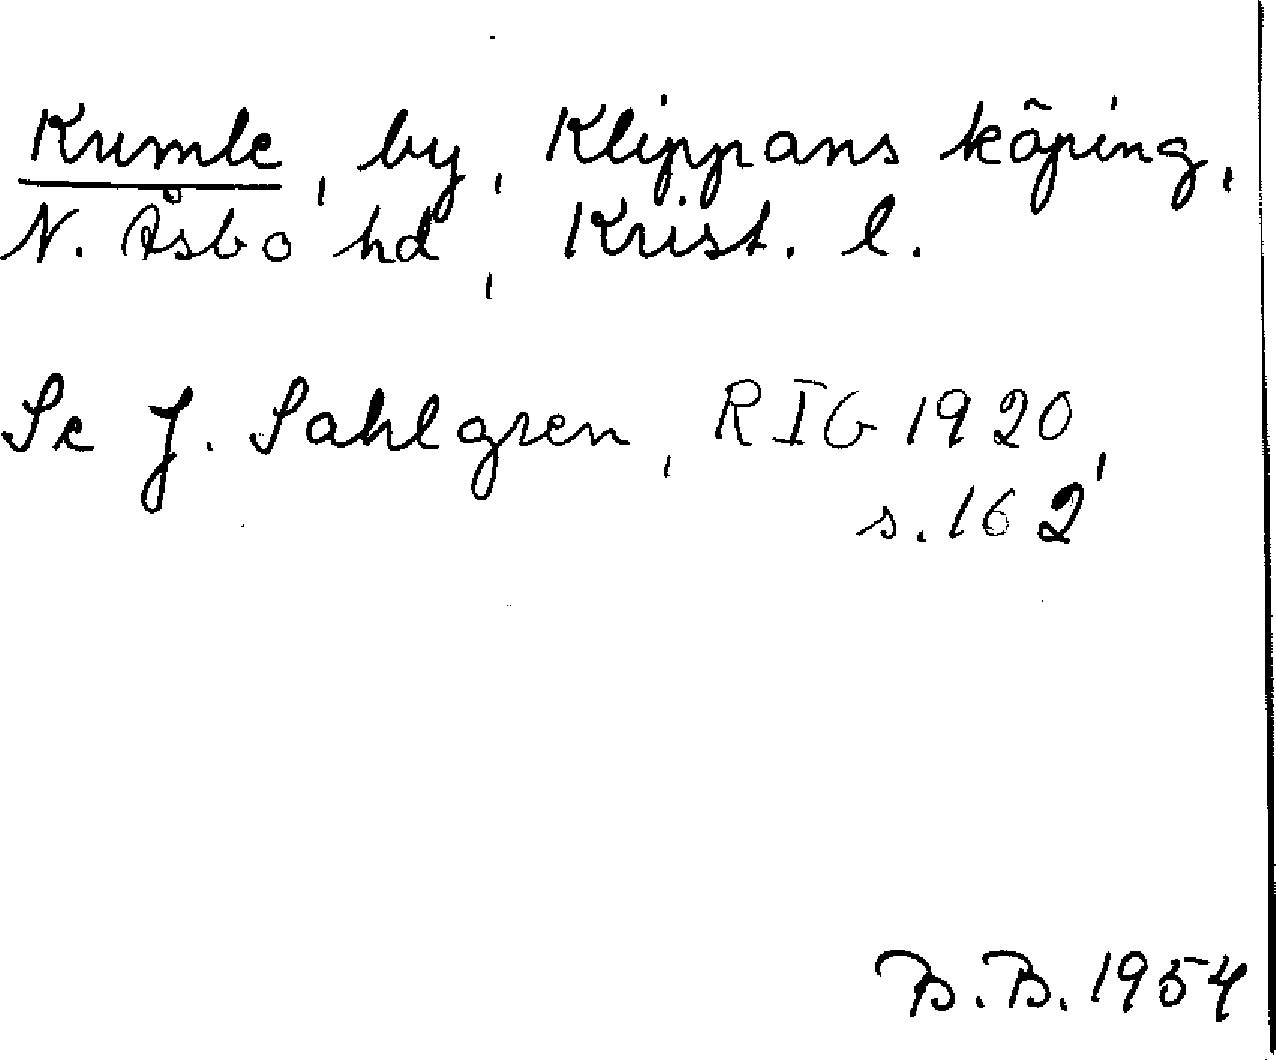 Krumle, by, Klippans köping,
N. Åsbo hd, Krist. l.
Se J. Sahlgren, RIG 1920,
s. 162
B.B. 1954